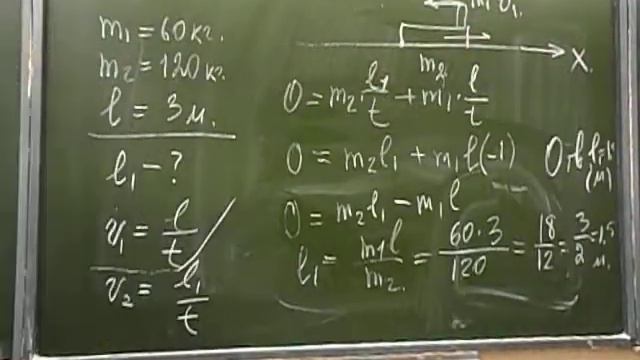 m₁ = 60 кг.
m₂ = 120 кг.
l = 3 м.
l₁ – ?
v₁ = l/t
v₂ = l₁/t
x
m₂
0 = m₂ · l₁/t + m₁ · l/t
0 = m₂l₁ + m₁l(-1)
0 = m₂l₁ – m₁l
l₁ = m₁l/m₂ = 60·3/120 = 18/12 = 3/2 = 1,5 м.